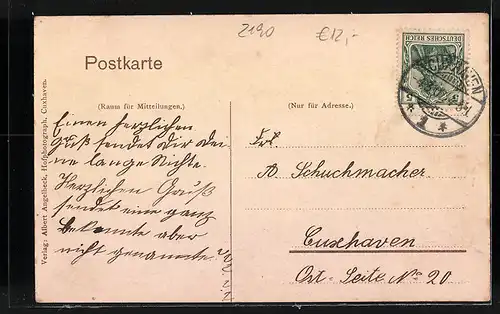 2190
€12,-
Postkarte
(Raum für Mitteilungen.)
(Nur für Adresse.)
DEUTSCHES REICH
CUXHAVEN
* 1 *
Verlag: Albert Angelbeck, Hofphotograph, Cuxhaven.
Einen herzlichen
Gruß sendet dir dei
ne lange Nichte.
Herzlichen Gruß
sendet eine ganz
bekannte aber
nicht genannte?
Frl
A. Schuchmacher
Cuxhaven
Ost-Seite No 20